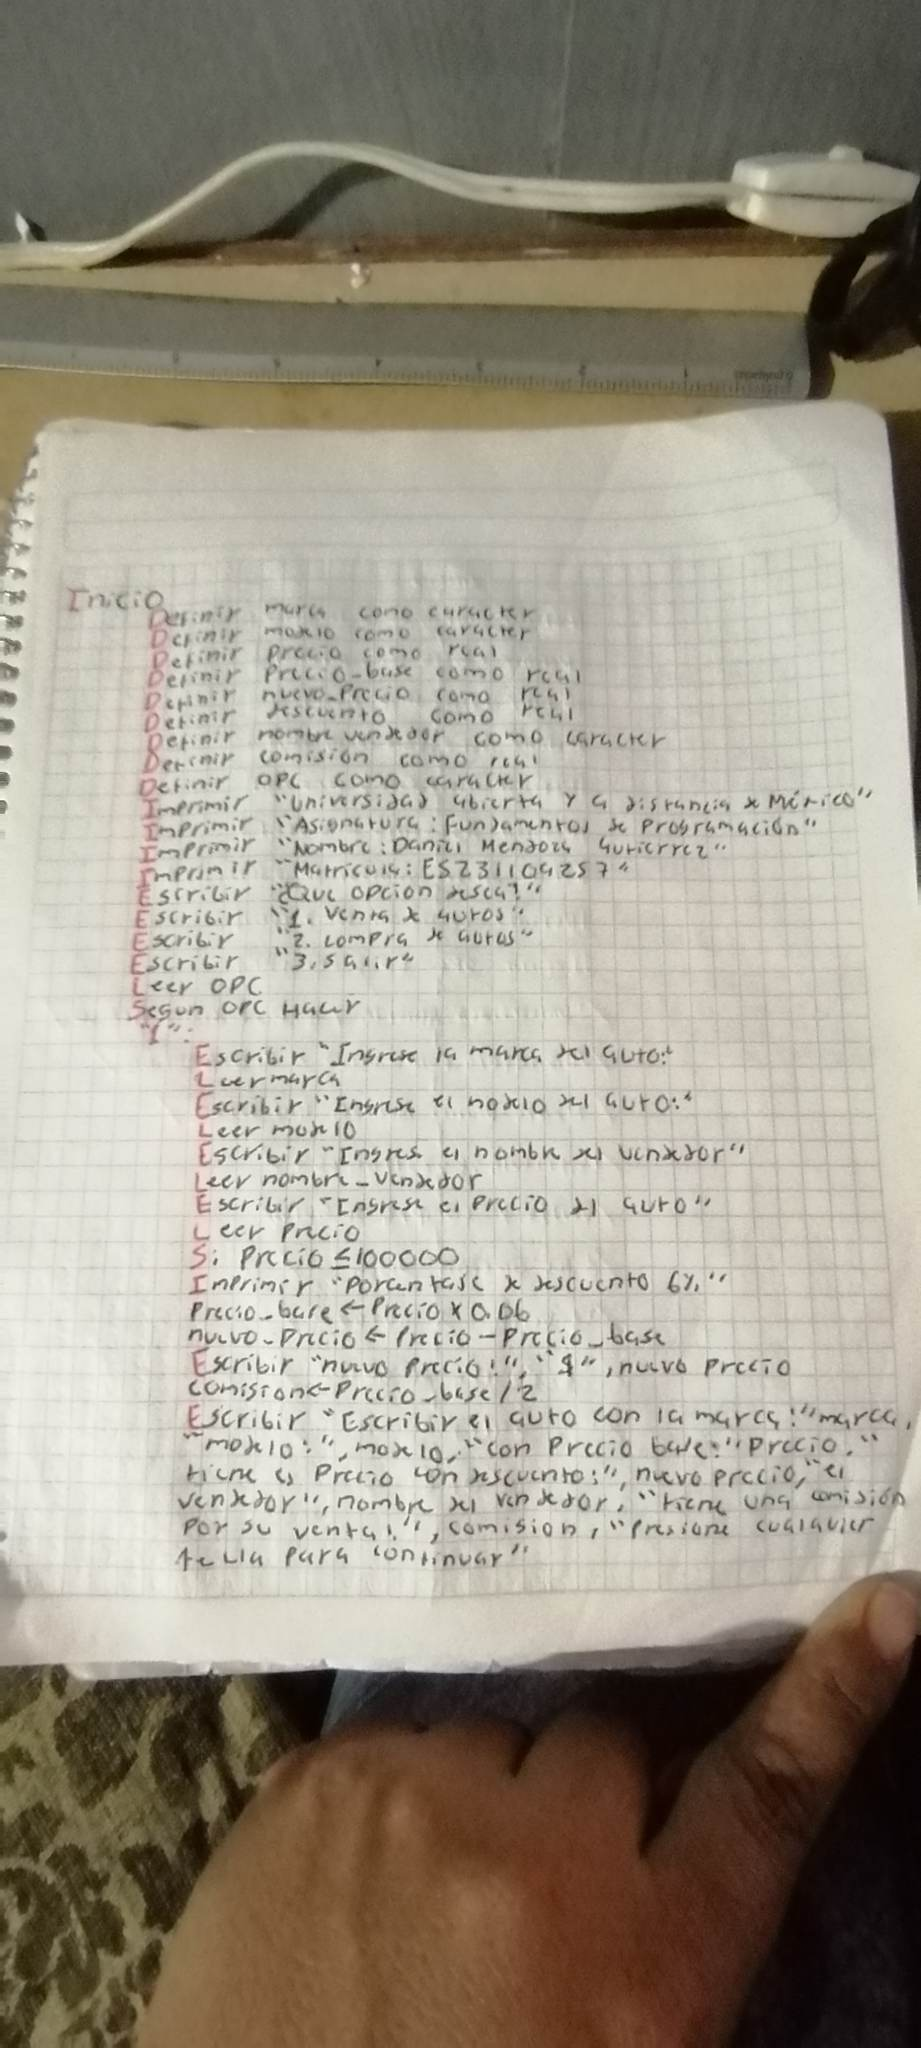 Inicio
Definir marca como caracter
Definir modelo como caracter
Definir precio como real
Definir Precio_base como real
Definir nuevo_Precio como real
Definir descuento como real
Definir nombre vendedor como caracter
Definir comisión como real
Definir OPC como caracter
Imprimir "Universidad abierta y a distancia de México"
Imprimir "Asignatura: Fundamentos de Programación"
Imprimir "Nombre: Daniel Mendoza Gutierrez"
Imprimir "Matricula: ES231104257"
Escribir "¿Que opcion desea?"
Escribir "1. Venta de autos"
Escribir "2. Compra de autos"
Escribir "3. Salir"
Leer OPC
Segun OPC Hacer
"1":
Escribir "Ingrese la marca del auto:"
Leer marca
Escribir "Ingrese el modelo del auto:"
Leer modelo
Escribir "Ingres el nombre del vendedor"
Leer nombre_vendedor
Escribir "Ingrese el Precio del auto"
Leer Precio
Si Precio ≤ 100000
Imprimir "Porcentaje de descuento 6%"
Precio_base ← Precio x 0.06
nuevo_Precio ← Precio - Precio_base
Escribir "nuevo Precio:", "$", nuevo precio
comision ← Precio_base / 2
Escribir "Escribir el auto con la marca:" marca,
"modelo:", modelo, "con Precio base:" Precio, "
tiene es Precio con descuento:", nuevo precio, "el
vendedor", nombre del vendedor, "tiene una comisión
por su venta:", comision, "Presione cualquier
tecla para continuar"